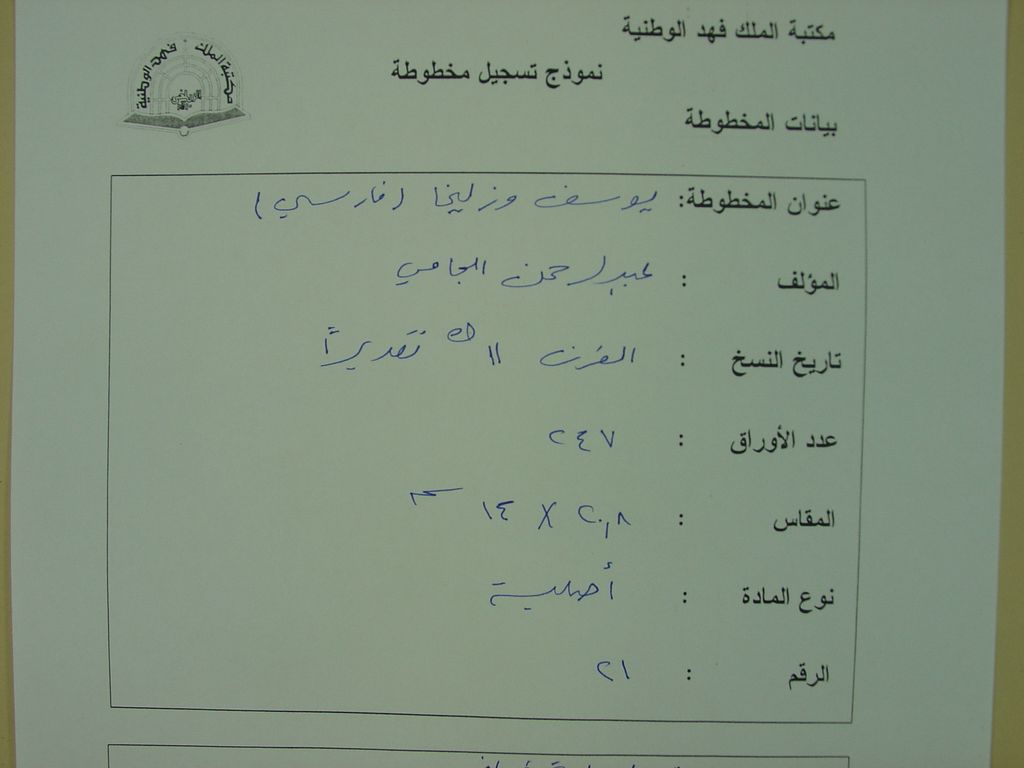 مكتبة الملك فهد الوطنية
نموذج تسجيل مخطوطة
مكتبة الملك فهد الوطنية
بيانات المخطوطة
عنوان المخطوطة: يوسف وزليخا (فارسي)
المؤلف : عبدالرحمن الجامي
تاريخ النسخ : القرن ١١ه تقديراً
عدد الأوراق : ٢٤٧
المقاس : ٢٠,٨ X ١٤ سم
نوع المادة : أصلية
الرقم : ٢١